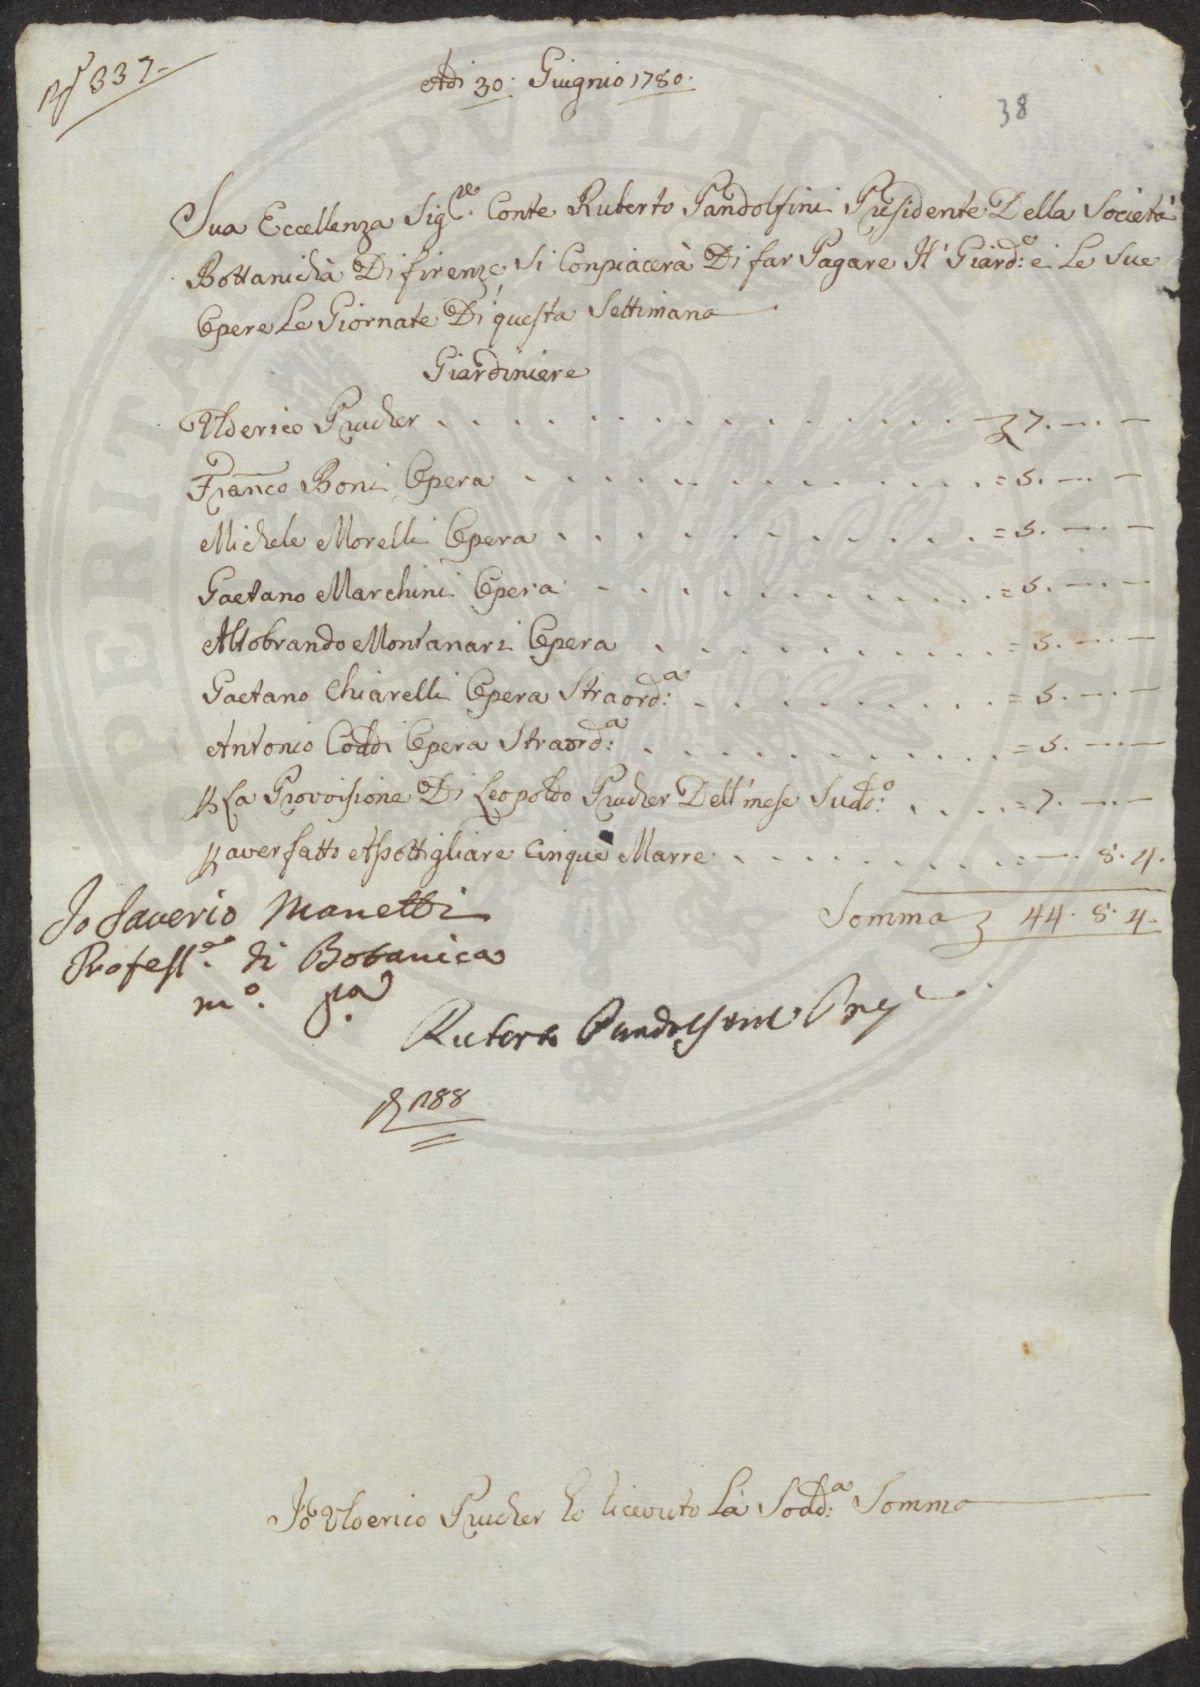 N.º 337.
Adi 30: Giugnio 1780.
38
Sua Eccellenza Sig.re Conte Ruberto Pandolfini Presidente Della Società
Bottanichà Di firenze, Si Conpiacerà Di far Pagare Il Giard:º e Le Sue
Opere Le Giornate Di questa Settimana
Giardiniere
Ulderico Prucher . . . . . . . . . . . . . . £ 7. —. —
Franco Boni Opera . . . . . . . . . . . . = 5. —. —
Michele Morelli Opera . . . . . . . . . . . = 5. —. —
Gaetano Marchini Opera . . . . . . . . . . = 5. —. —
Altobrando Montanari Opera . . . . . . . . . = 5. —. —
Gaetano Chiarelli Opera Straord:a . . . . . . . . = 5. —. —
Antonio Coddi Opera Straord:a . . . . . . . . . = 5. —. —
p La Provvisione Di Leopoldo Prucher Dell' mese Sudd:º . . . . = 7. —. —
p aver fatto Apottigliare Cinque Marre . . . . . . . . = —. 8. 4.
Somma £ 44. 8. 4.
Io Saverio Manetti
Profess.e di Botanica
m.º p.a
Ruberto Pandolfini Pres
188
Io Ulderico Prucher ho riceuto La Sodd:a Somma
PERITA PVBLICA